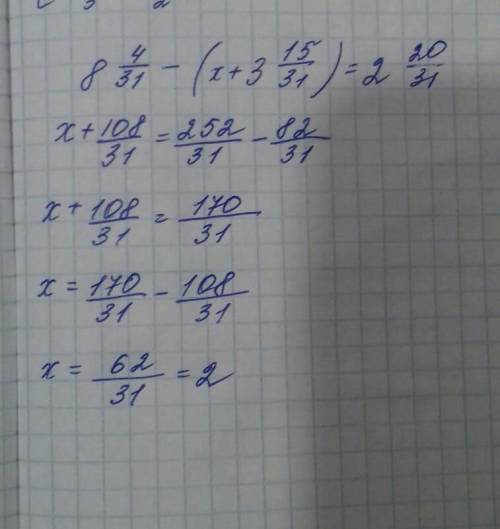 8 4/31 - (x + 3 15/31) = 2 20/31
x + 108/31 = 252/31 - 82/31
x + 108/31 = 170/31
x = 170/31 - 108/31
x = 62/31 = 2